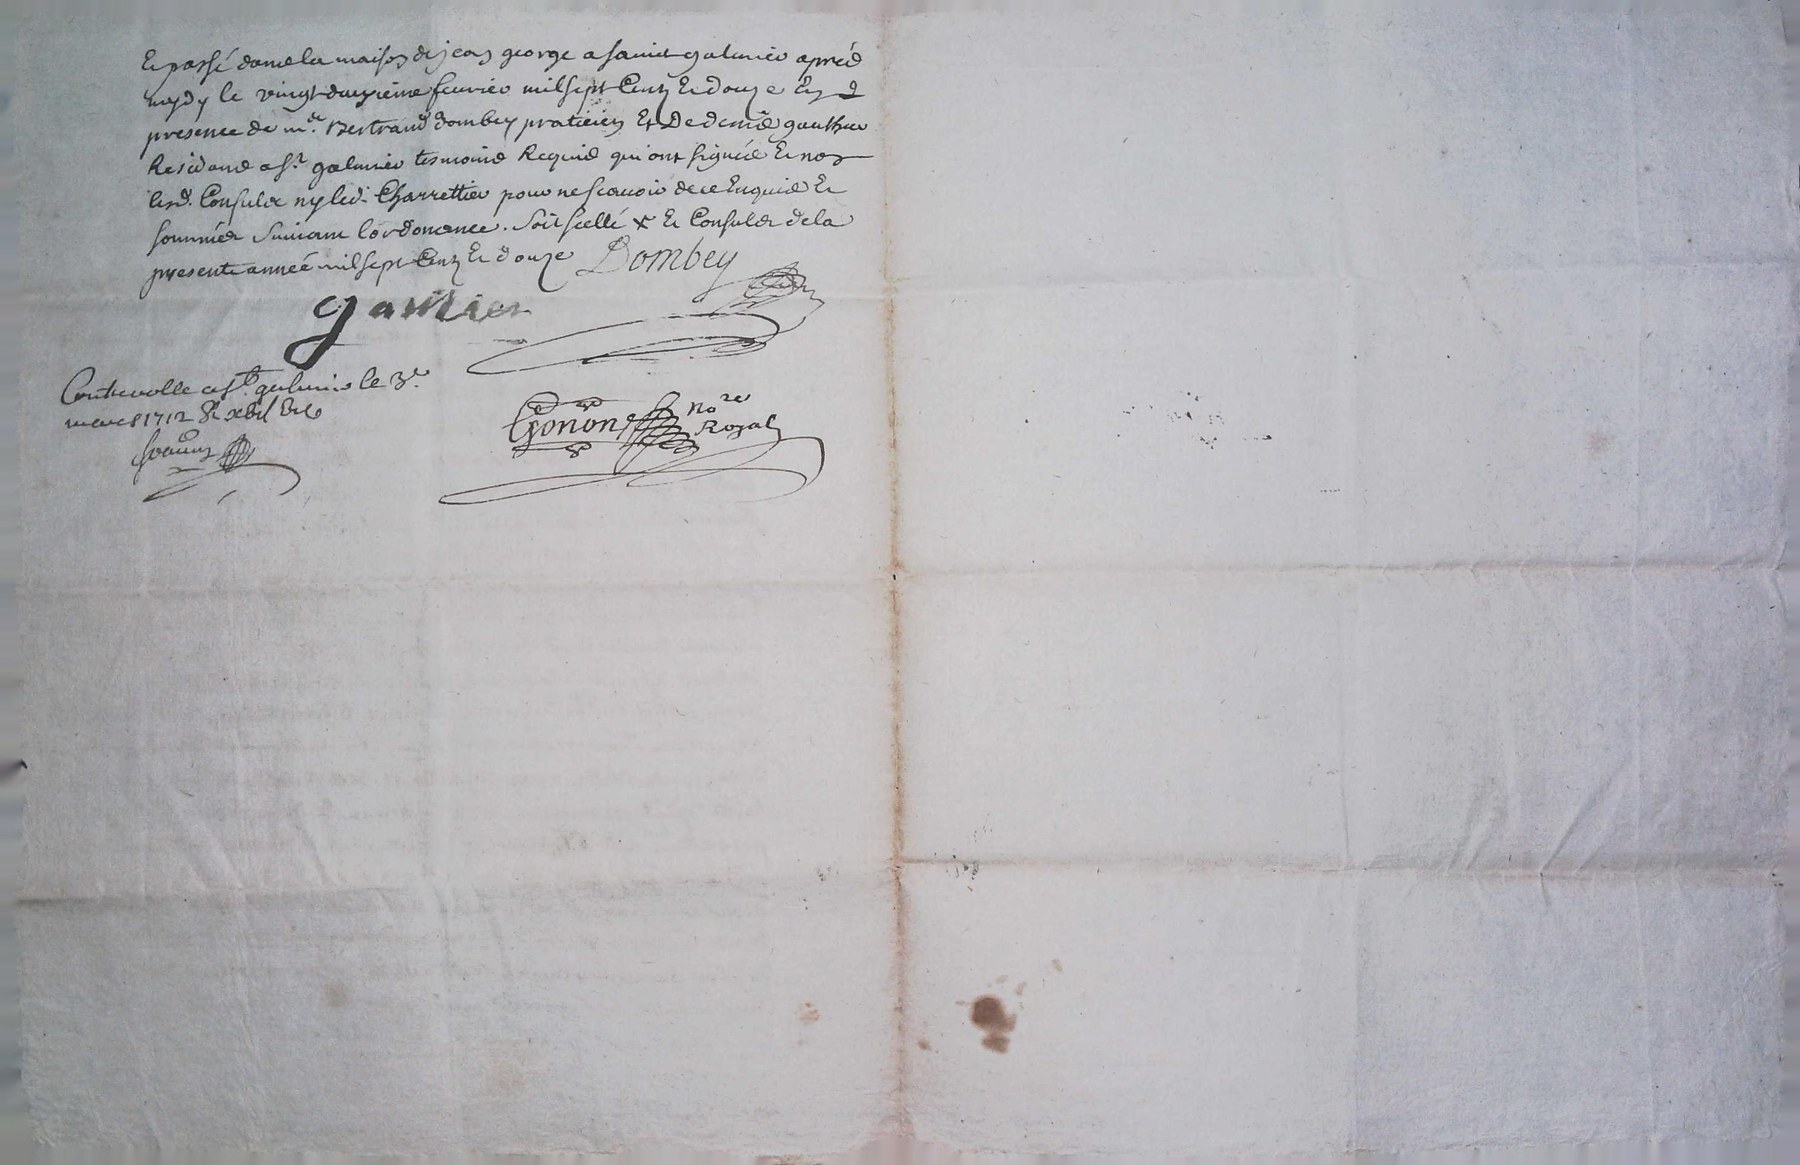 Et passé dans la maison de jean george a sainct galmier aprés
mydy le vingt deuxieme fevrier mil sept Centz Et douze En
presence de mr. Bertrand dombey praticien Et De denis gauthier
Residans a st. galmier tesmoins Requis qui ont signés Et non
lesd. Consulz ny led. Charrettier pour ne scavoir de ce Enquis Et
sommés suivant l'ordonance. Soit scellé x Et Consulz de la
presente année mil sept Centz Et douze Dombey
gautier
Contrerolle a st. galmier le 3e.
mars 1712
Gonon nore
Royal